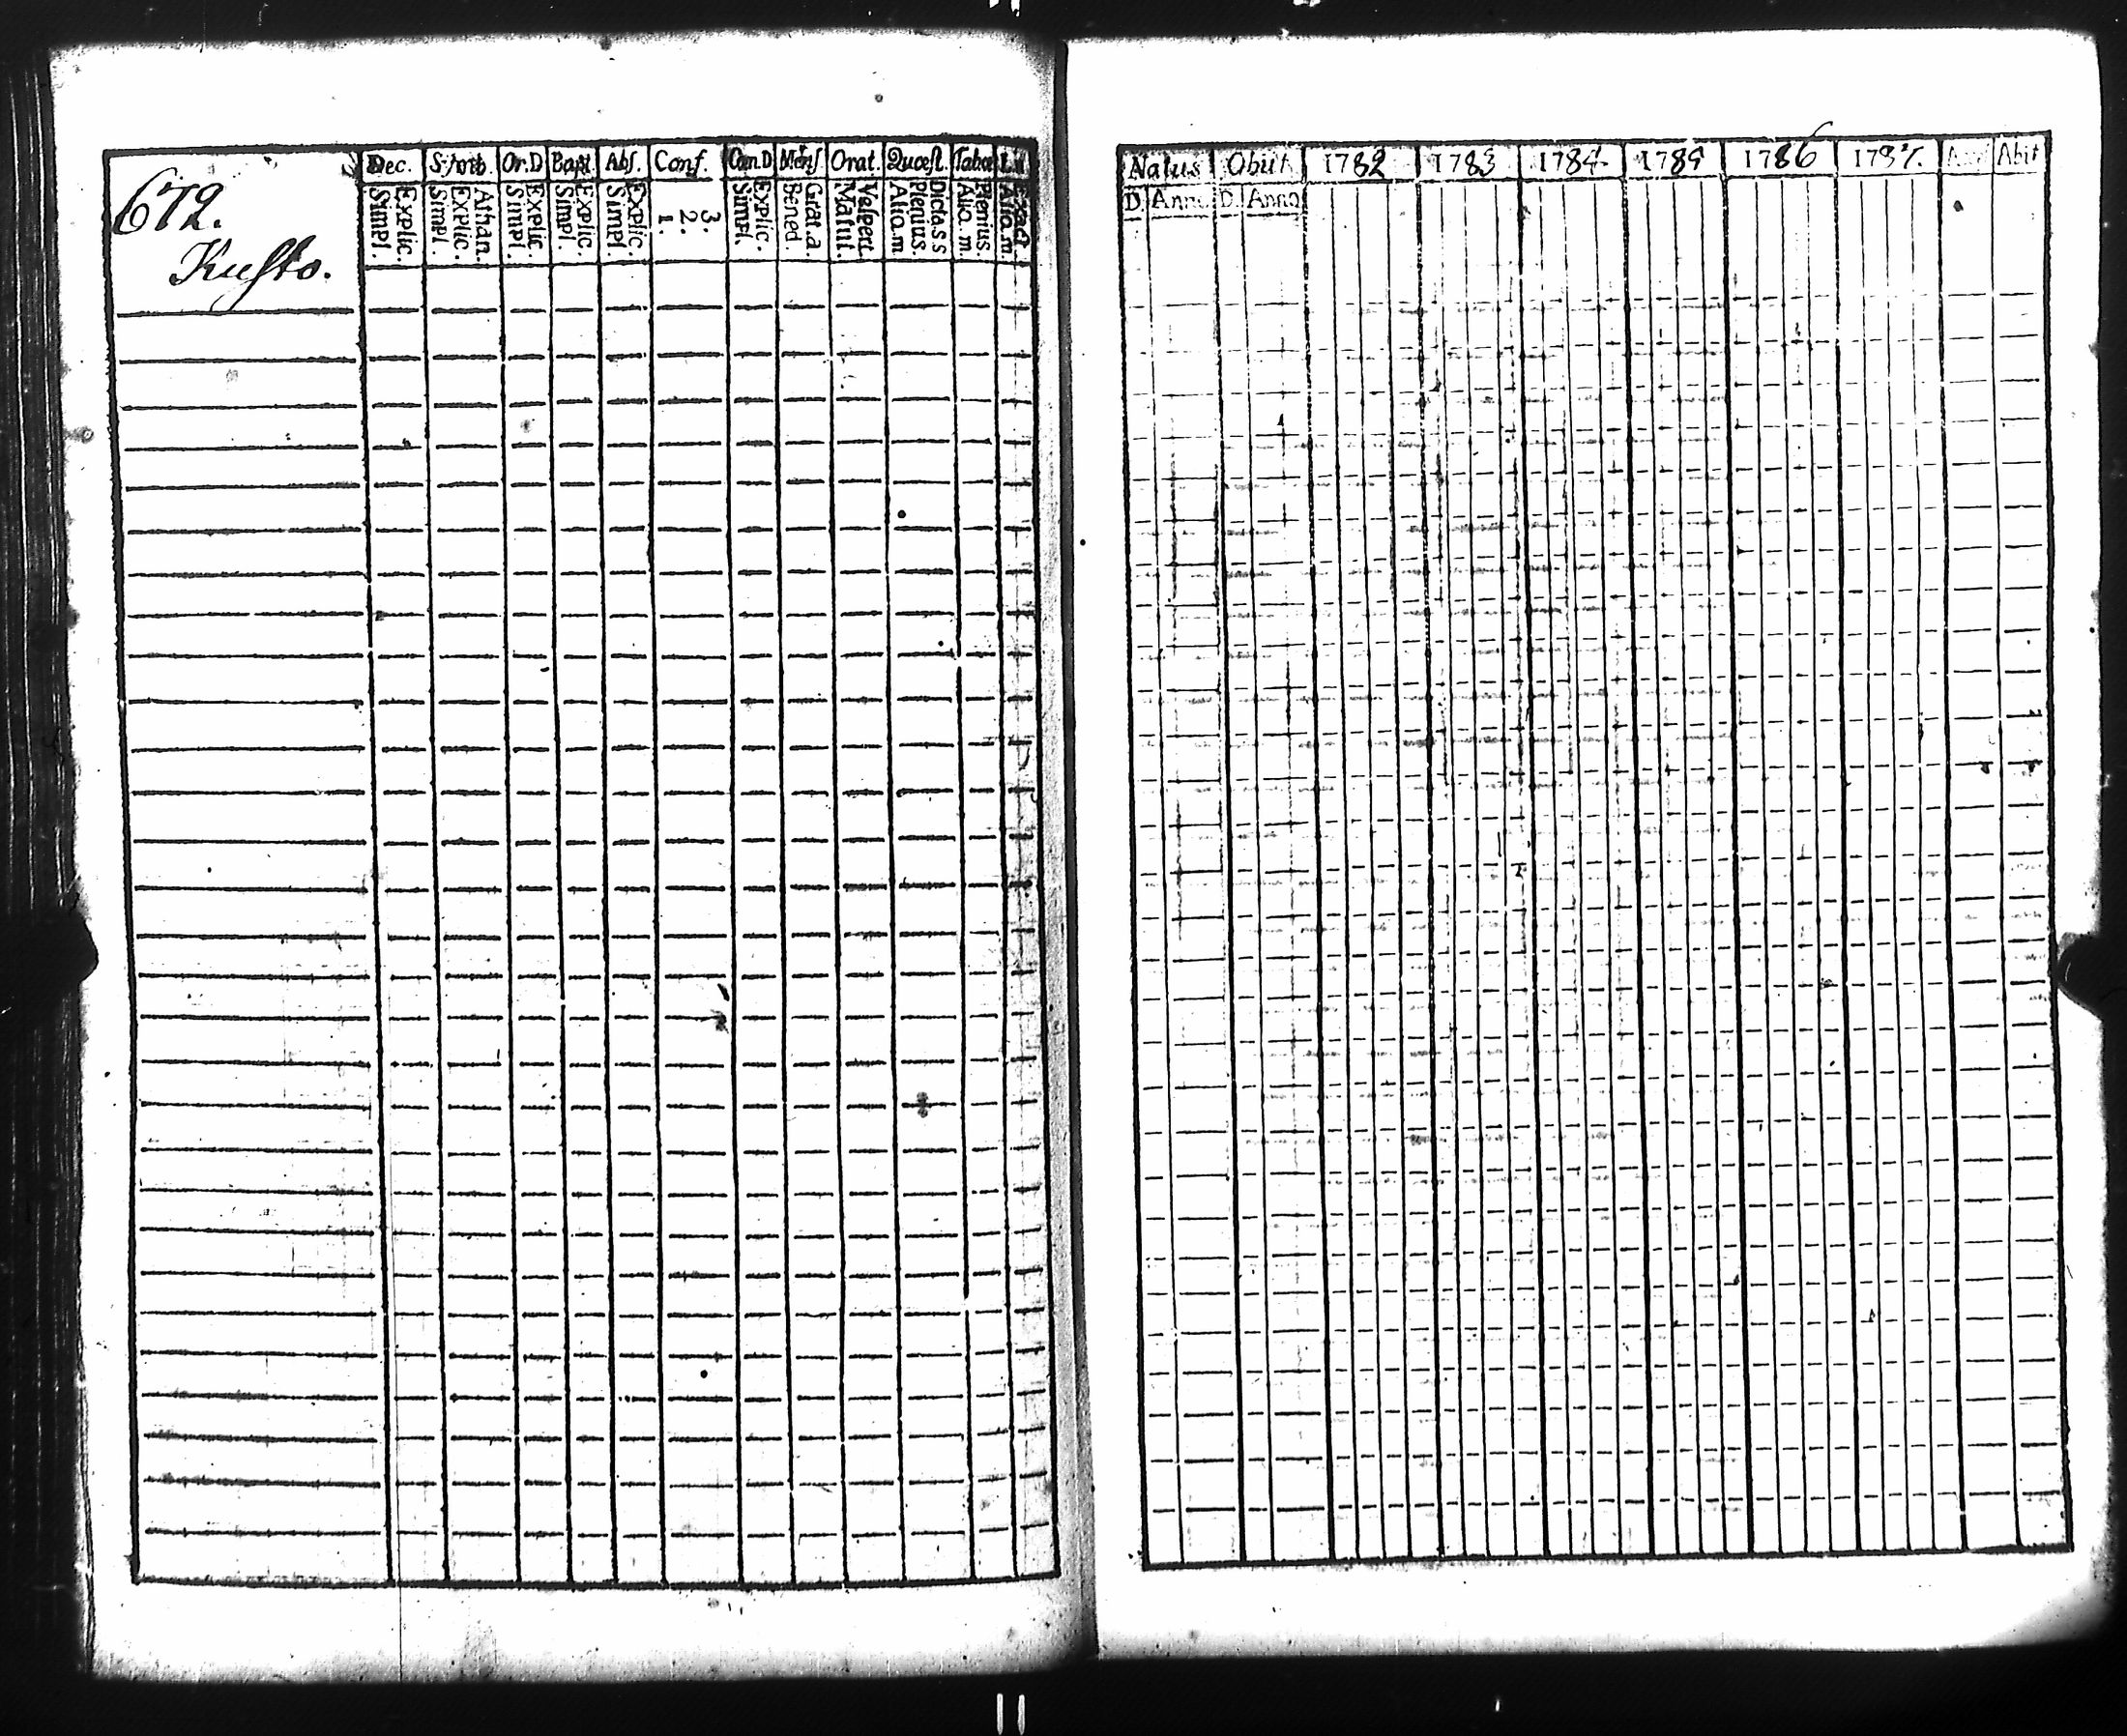 672.
Kusto.
Dec. Symb. Or.D Bapt. Abs. Conf. Cœn.D Mens Orat. Quæst. Tabæ
Simpl. Explic. Simpl. Explic. Athan. Simpl. Explic. Simpl. Explic. Simpl. Explic. 1. 2. 3. Simpl. Explic. Bened. Grat.a. Matut. Vespert. Alio.m Plenius. Dicta.s.s Alio.m Plenius. Alio.m. Exact
Natus Obiit 1782 1783 1784 1785 1786 1787. Abit
D Anno D. Anno